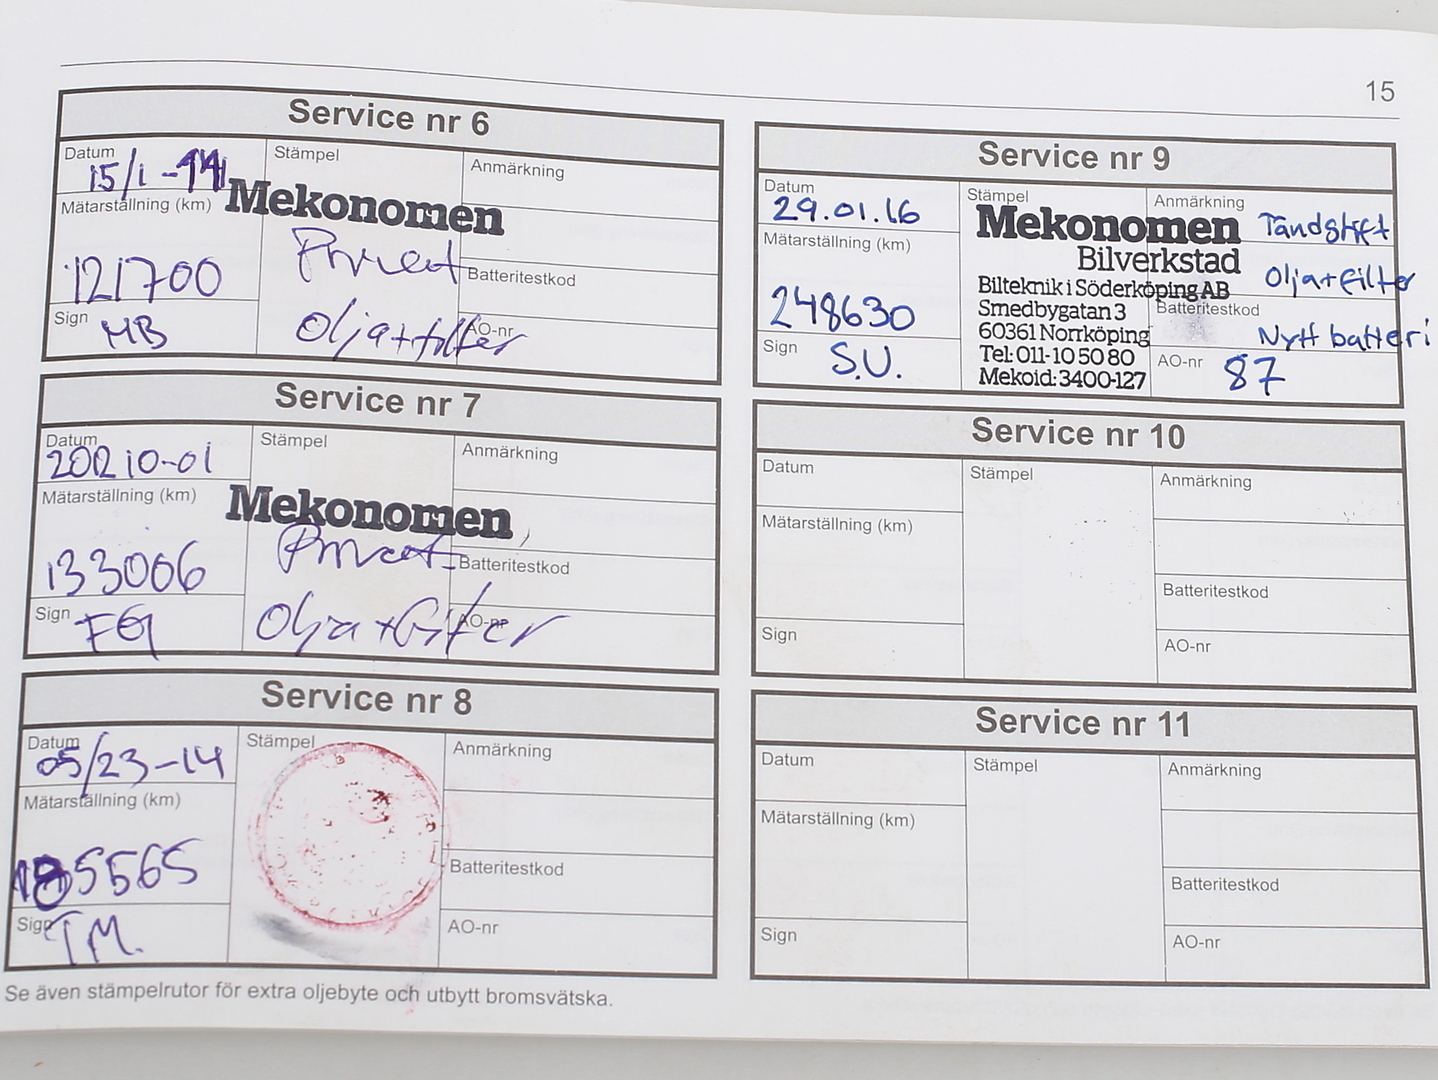 15
Service nr 6
Datum
15/1-11
Stämpel
Anmärkning
Mätarställning (km)
Mekonomen
Privat
121700
Batteritestkod
Sign
MB
Olja+filter
AO-nr
Service nr 7
Datum
2012 10-01
Stämpel
Anmärkning
Mätarställning (km)
Mekonomen
Privat
133006
Batteritestkod
Sign
FG
Olja+filter
AO-nr
Service nr 8
Datum
05/23-14
Stämpel
Anmärkning
Mätarställning (km)
185565
Batteritestkod
Sign
TM.
AO-nr
Se även stämpelrutor för extra oljebyte och utbytt bromsvätska.
Service nr 9
Datum
29.01.16
Stämpel
Anmärkning
Tändstift
Mätarställning (km)
Mekonomen
Bilverkstad
Olja+filter
Bilteknik i Söderköping AB
248630
Smedbygatan 3
Batteritestkod
60361 Norrköping
Nytt batteri
Sign
S.U.
Tel: 011-10 50 80
AO-nr
87
Mekoid: 3400-127
Service nr 10
Datum
Stämpel
Anmärkning
Mätarställning (km)
Batteritestkod
Sign
AO-nr
Service nr 11
Datum
Stämpel
Anmärkning
Mätarställning (km)
Batteritestkod
Sign
AO-nr